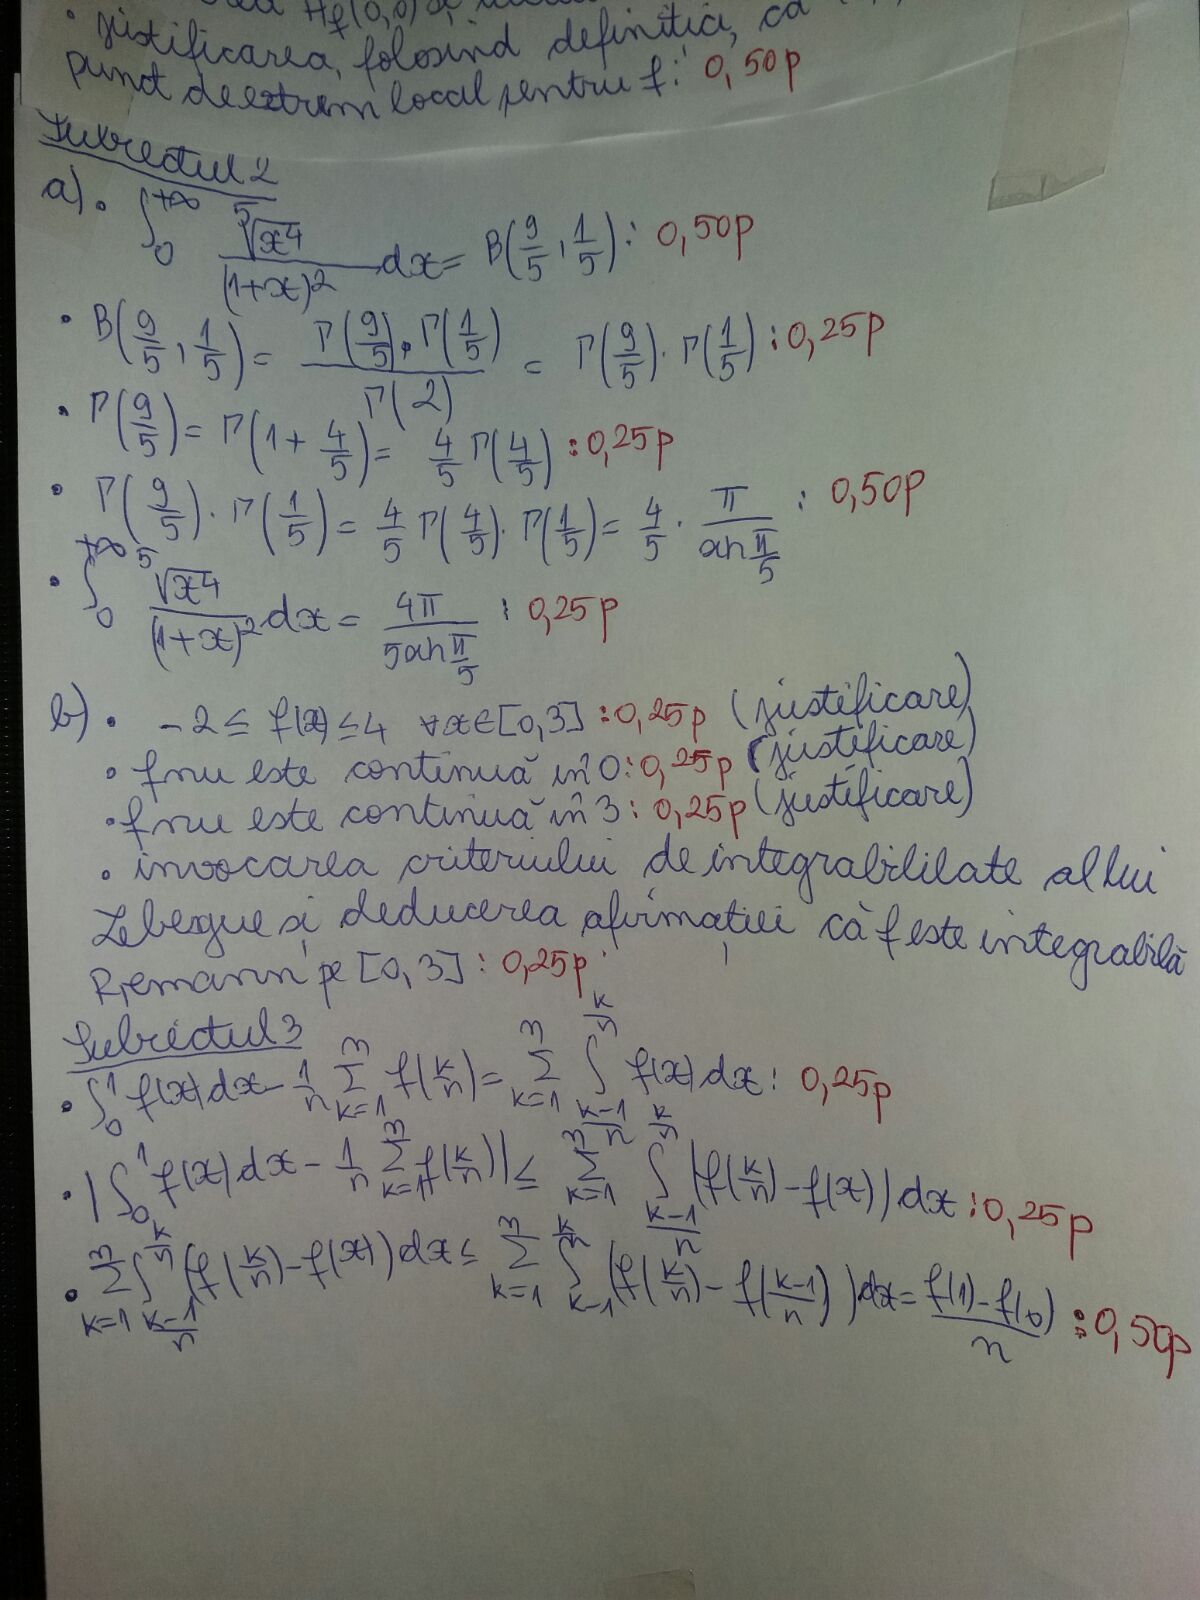 Hf(0,0)
• justificarea, folosind definitici, că
punct de extrem local pentru f: 0,50p
Subiectul 2
a) • ∫_0^{+∞} \frac{\sqrt[5]{x^4}}{(1+x)^2} dx = B(9/5, 1/5) : 0,50p
• B(9/5, 1/5) = \frac{Γ(9/5) · Γ(1/5)}{Γ(2)} = Γ(9/5) · Γ(1/5) : 0,25p
• Γ(9/5) = Γ(1 + 4/5) = 4/5 Γ(4/5) : 0,25p
• Γ(9/5) · Γ(1/5) = 4/5 Γ(4/5) · Γ(1/5) = 4/5 · \frac{π}{sin π/5} : 0,50p
• ∫_0^{+∞} \frac{\sqrt[5]{x^4}}{(1+x)^2} dx = \frac{4π}{5 sin π/5} : 0,25p
b) • -2 ≤ f(x) ≤ 4 ∀x∈[0,3] : 0,25p (justificare)
• f nu este continuă în 0 : 0,25p (justificare)
• f nu este continuă în 3 : 0,25p (justificare)
• invocarea criteriului de integrabililate al lui
Lebesgue și deducerea afirmației că f este integrabilă
Riemann pe [0,3] : 0,25p
Subiectul 3
• ∫_0^1 f(x) dx - 1/n ∑_{k=1}^n f(k/n) = ∑_{k=1}^n ∫_{\frac{k-1}{n}}^{\frac{k}{n}} f(x) dx : 0,25p
• |∫_0^1 f(x) dx - 1/n ∑_{k=1}^n f(k/n)| ≤ ∑_{k=1}^n ∫_{\frac{k-1}{n}}^{\frac{k}{n}} (f(k/n) - f(x)) dx : 0,25p
• ∑_{k=1}^n ∫_{\frac{k-1}{n}}^{\frac{k}{n}} (f(k/n) - f(x)) dx ≤ ∑_{k=1}^n ∫_{k-1}^{\frac{k}{n}} (f(k/n) - f(\frac{k-1}{n})) dx = \frac{f(1) - f(0)}{n} : 0,50p